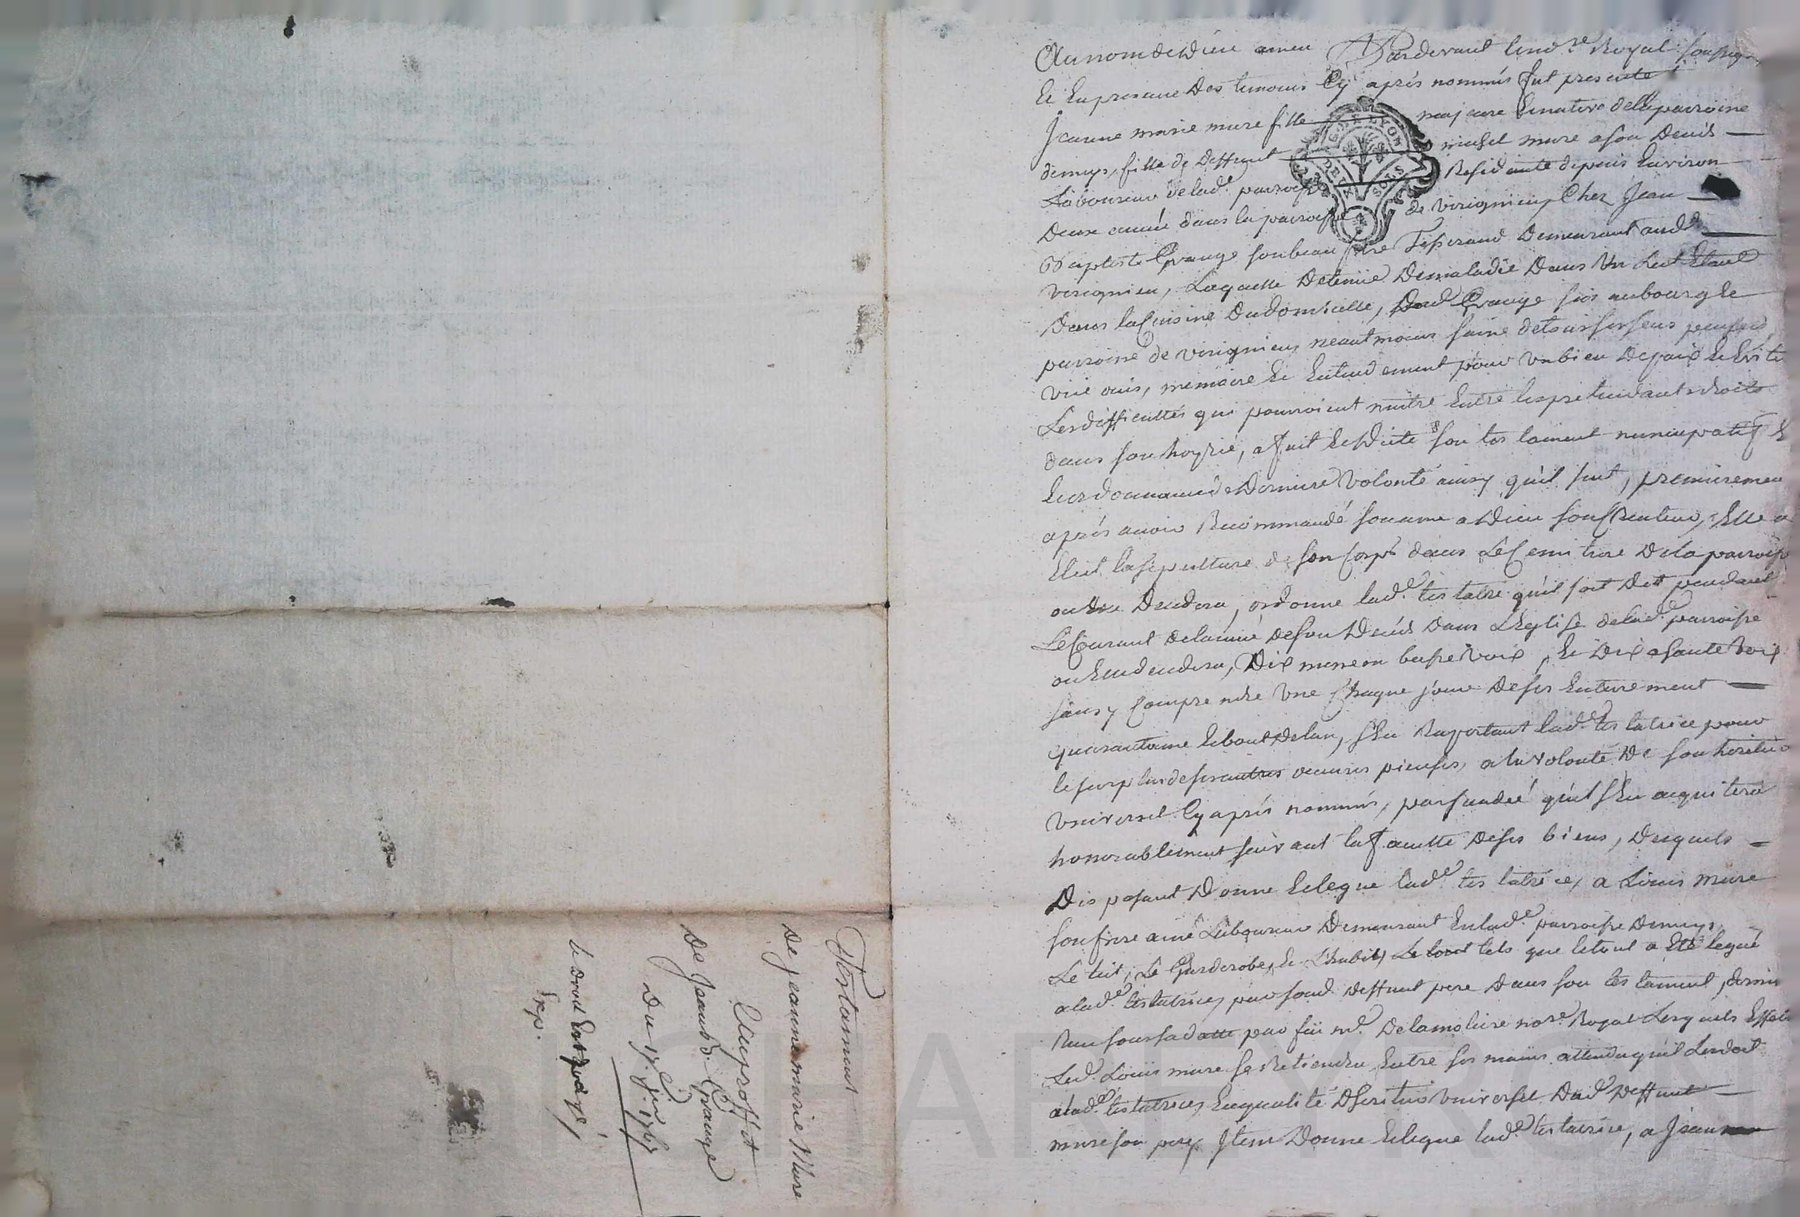 Au nom de Dieu amen Pardevant le no.re Royal soussigné
Et en presance des temoins Cy après nommés fut presente
Jeanne marie mure fille majeure Et native de la parroisse
fille de deffunt michel mure a son Deces
Laboureur de lad.e parroisse Residante depuis Environ
Deux année dans la parroisse de virignieu, Chez Jean
Baptiste Grange son beau frere Tisserand Demeurant aud.
virignieu, Laquelle Detenüe De maladie Dans Un Lict Etant
Dans la Cuisine Du domicille, Dud. Grange sis au bourg Et
parroisse de virignieu, neantmoins saine de tous ses sens
vüe ouis, memoire Et Entendement pour Un bien De paix Et Eviter
Les difficultés qui pouroient naitre Entre les pretendants droits
dans son hoyrie, a fait Et Dicté son testament nuncupatif Et
Et ordonnance de Derniere Volonté ainsy qu'il suit, premierement
après avoir Recommandé son ame a Dieu son Createur, Elle a
Elut la sepulture de son Corps dans Le Cemitiere De la parroisse
ou Decedera, ordonne lad.e testatrice qu'il soit Dit pendant
Le Courant de lannée de son Deces Dans L'Eglise de lad.e parroisse
ou Elle decedera, Dix messe en basse Voix, Et Dix a haute Voix
sans y Comprendre Une Chaque jour De ses Enterrement
quarantaine Et bout De lan, s'En Raportant lad.e testatrice pour
le surplus de ses autres oeuvres pieuses, a la Volonté De son heritier
Universel Cy après nommés, persuadée qu'il s'En aquitera
honorablement suivant la faculté De ses biens, Desquels
Disposant Donne Et legue lad.e testatrice, a Louis mure
son frere ainé Laboureur Demeurant En lad.e parroisse
Le Lit, Le Garderobe, Et L'habit, Le tout tels que le tout a Eté legué
a lad.e testatrice, par son d. deffunt pere Dans son testament,
Reçu sous sa datte par feu m.e De la moliere no.re Royal Lesquels Effets
Led. Louis mure se Retiendra Entre ses mains attendu qu'il Les doit
a lad.e testatrice, En qualité D'heritier Universel Dud. Deffunt
mure son pere, Item Donne Et legue lad.e testatrice, a Jean
Testament
De jeanne marie Mure
Au proffit
De Jean B. Grange
Du 17.e 1767
Exp.